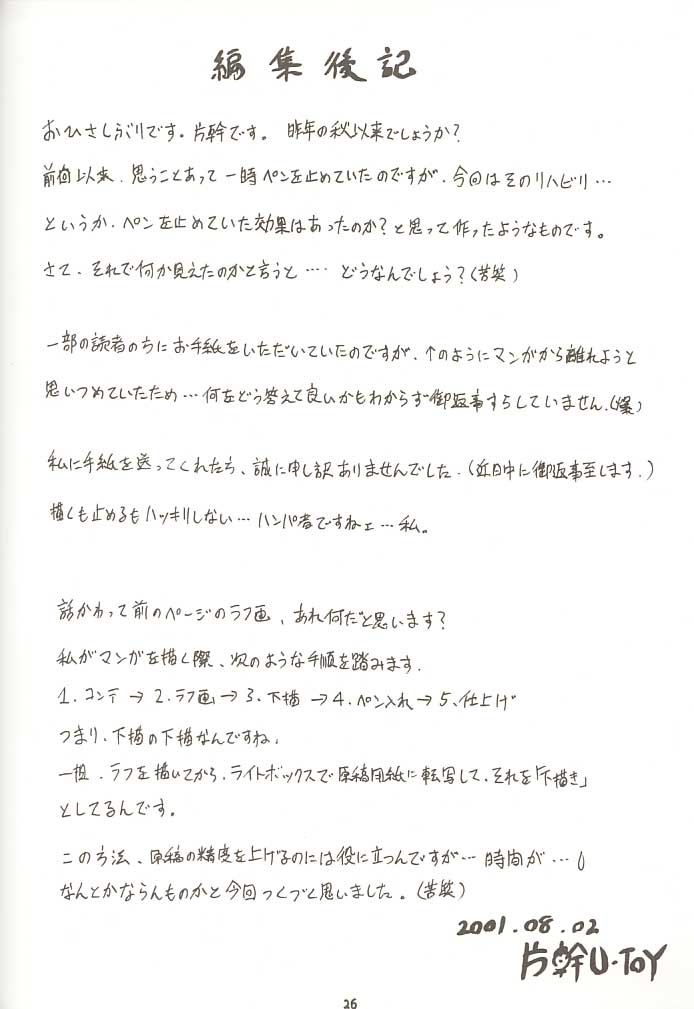 編集後記
おひさしぶりです。片幹です。 昨年の秋以来でしょうか?
前回以来、思うことあって一時ペンを止めていたのですが、今回はそのリハビリ…
というか、ペンを止めていた効果はあったのか?と思って作ったようなものです。
さて、それで何か見えたのかと言うと…. どうなんでしょう?(苦笑)
一部の読者のちにお手紙をいただいていたのですが、↑のようにマンガから離れようと
思いつめていたため…何をどう答えて良いかもわからず御返事すらしていません、(爆)
私に手紙を送ってくれたら、誠に申し訳ありませんでした。(近日中に御返事至します。)
描くも止めるもハッキリしない…ハンパ者ですねェ…私。
話かわって前のページのラフ画、あれ何だと思います?
私がマンガを描く際、次のような手順を踏みます。
1.コンテ→2.ラフ画→3.下描→4.ペン入れ→5、仕上げ
つまり、下描の下描なんですね、
一担、ラフを描いてから、ライトボックスで原稿用紙に転写して、それを「下描き」
としてるんです。
この方法、原稿の精度を上げるのには役に立つんですが…時間が…
なんとかならんものかと今回つくづくと思いました。(苦笑)
2001.08.02
片幹U・ToY
26